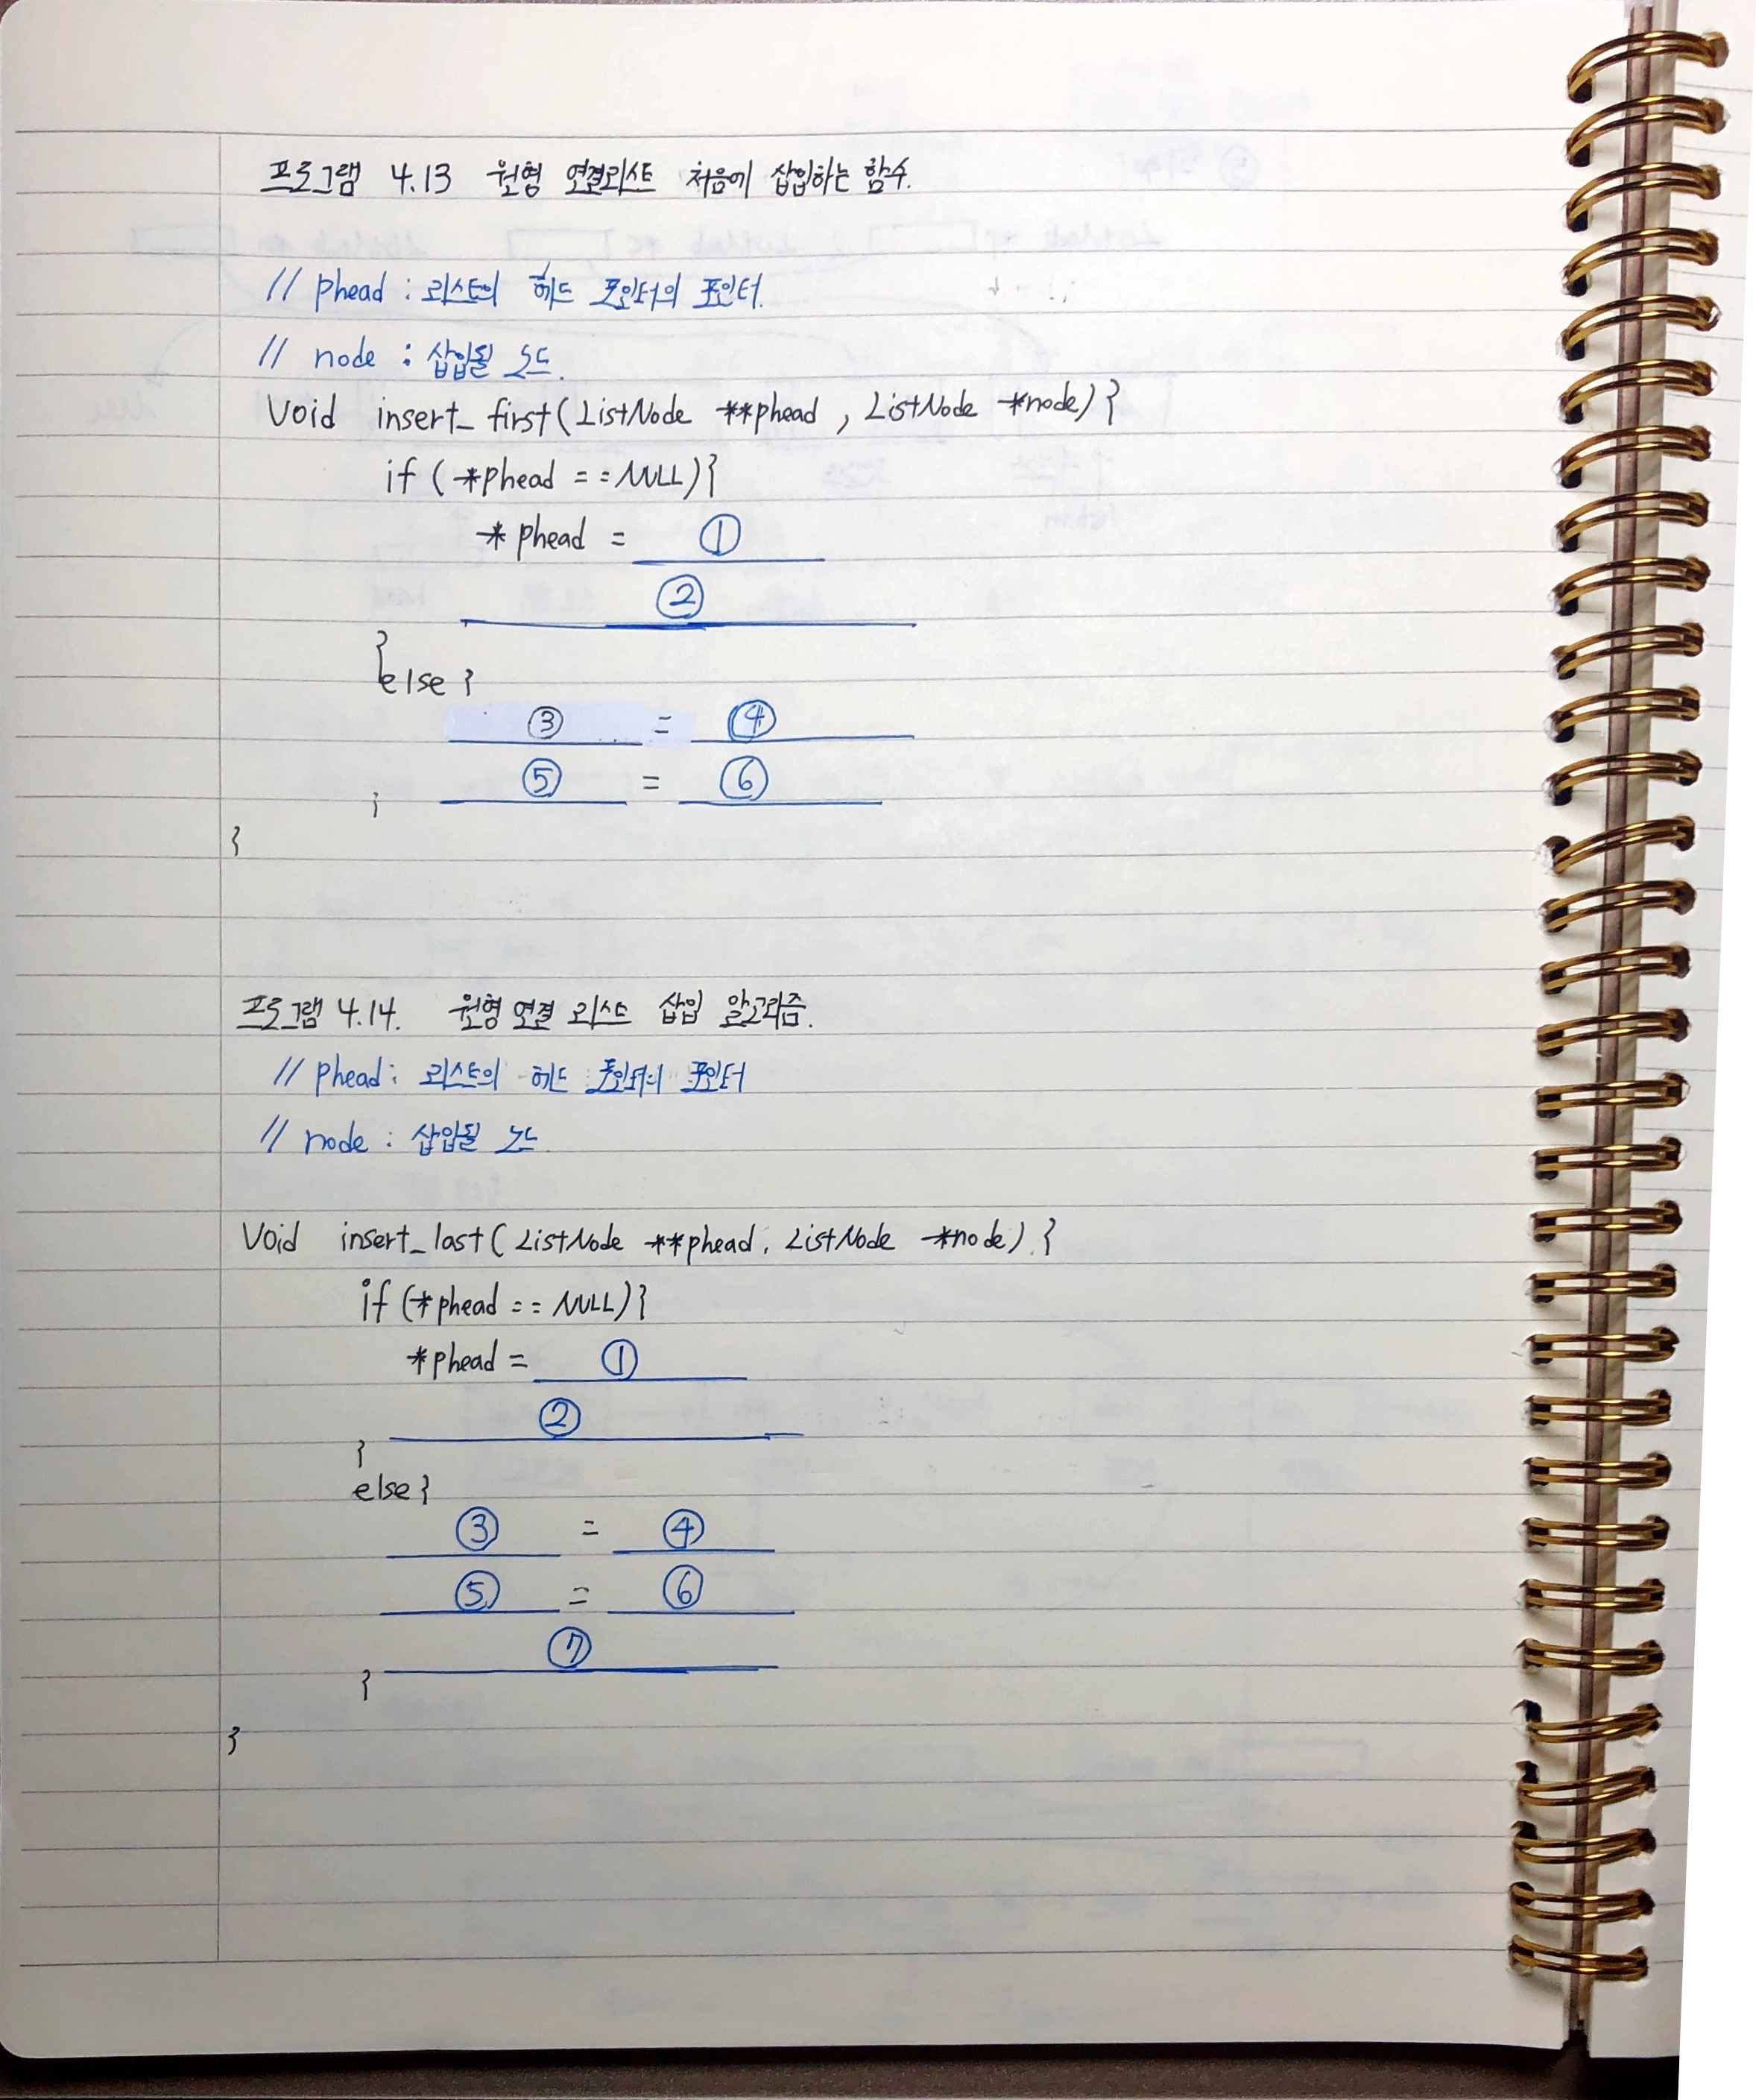 프로그램 4.13 원형 연결리스트 처음에 삽입하는 함수.
// phead : 리스트의 헤드 포인터의 포인터.
// node : 삽입될 노드.
Void insert_first(ListNode **phead, ListNode *node){
if (*phead == NULL){
*phead = ①
②
}
else {
③ = ④
⑤ = ⑥
}
}
프로그램 4.14. 원형 연결 리스트 삽입 알고리즘.
// phead : 리스트의 헤드 포인터의 포인터
// node : 삽입될 노드
Void insert_last(ListNode **phead, ListNode *node) {
if (*phead == NULL){
*phead = ①
②
}
else{
③ = ④
⑤ = ⑥
⑦
}
}